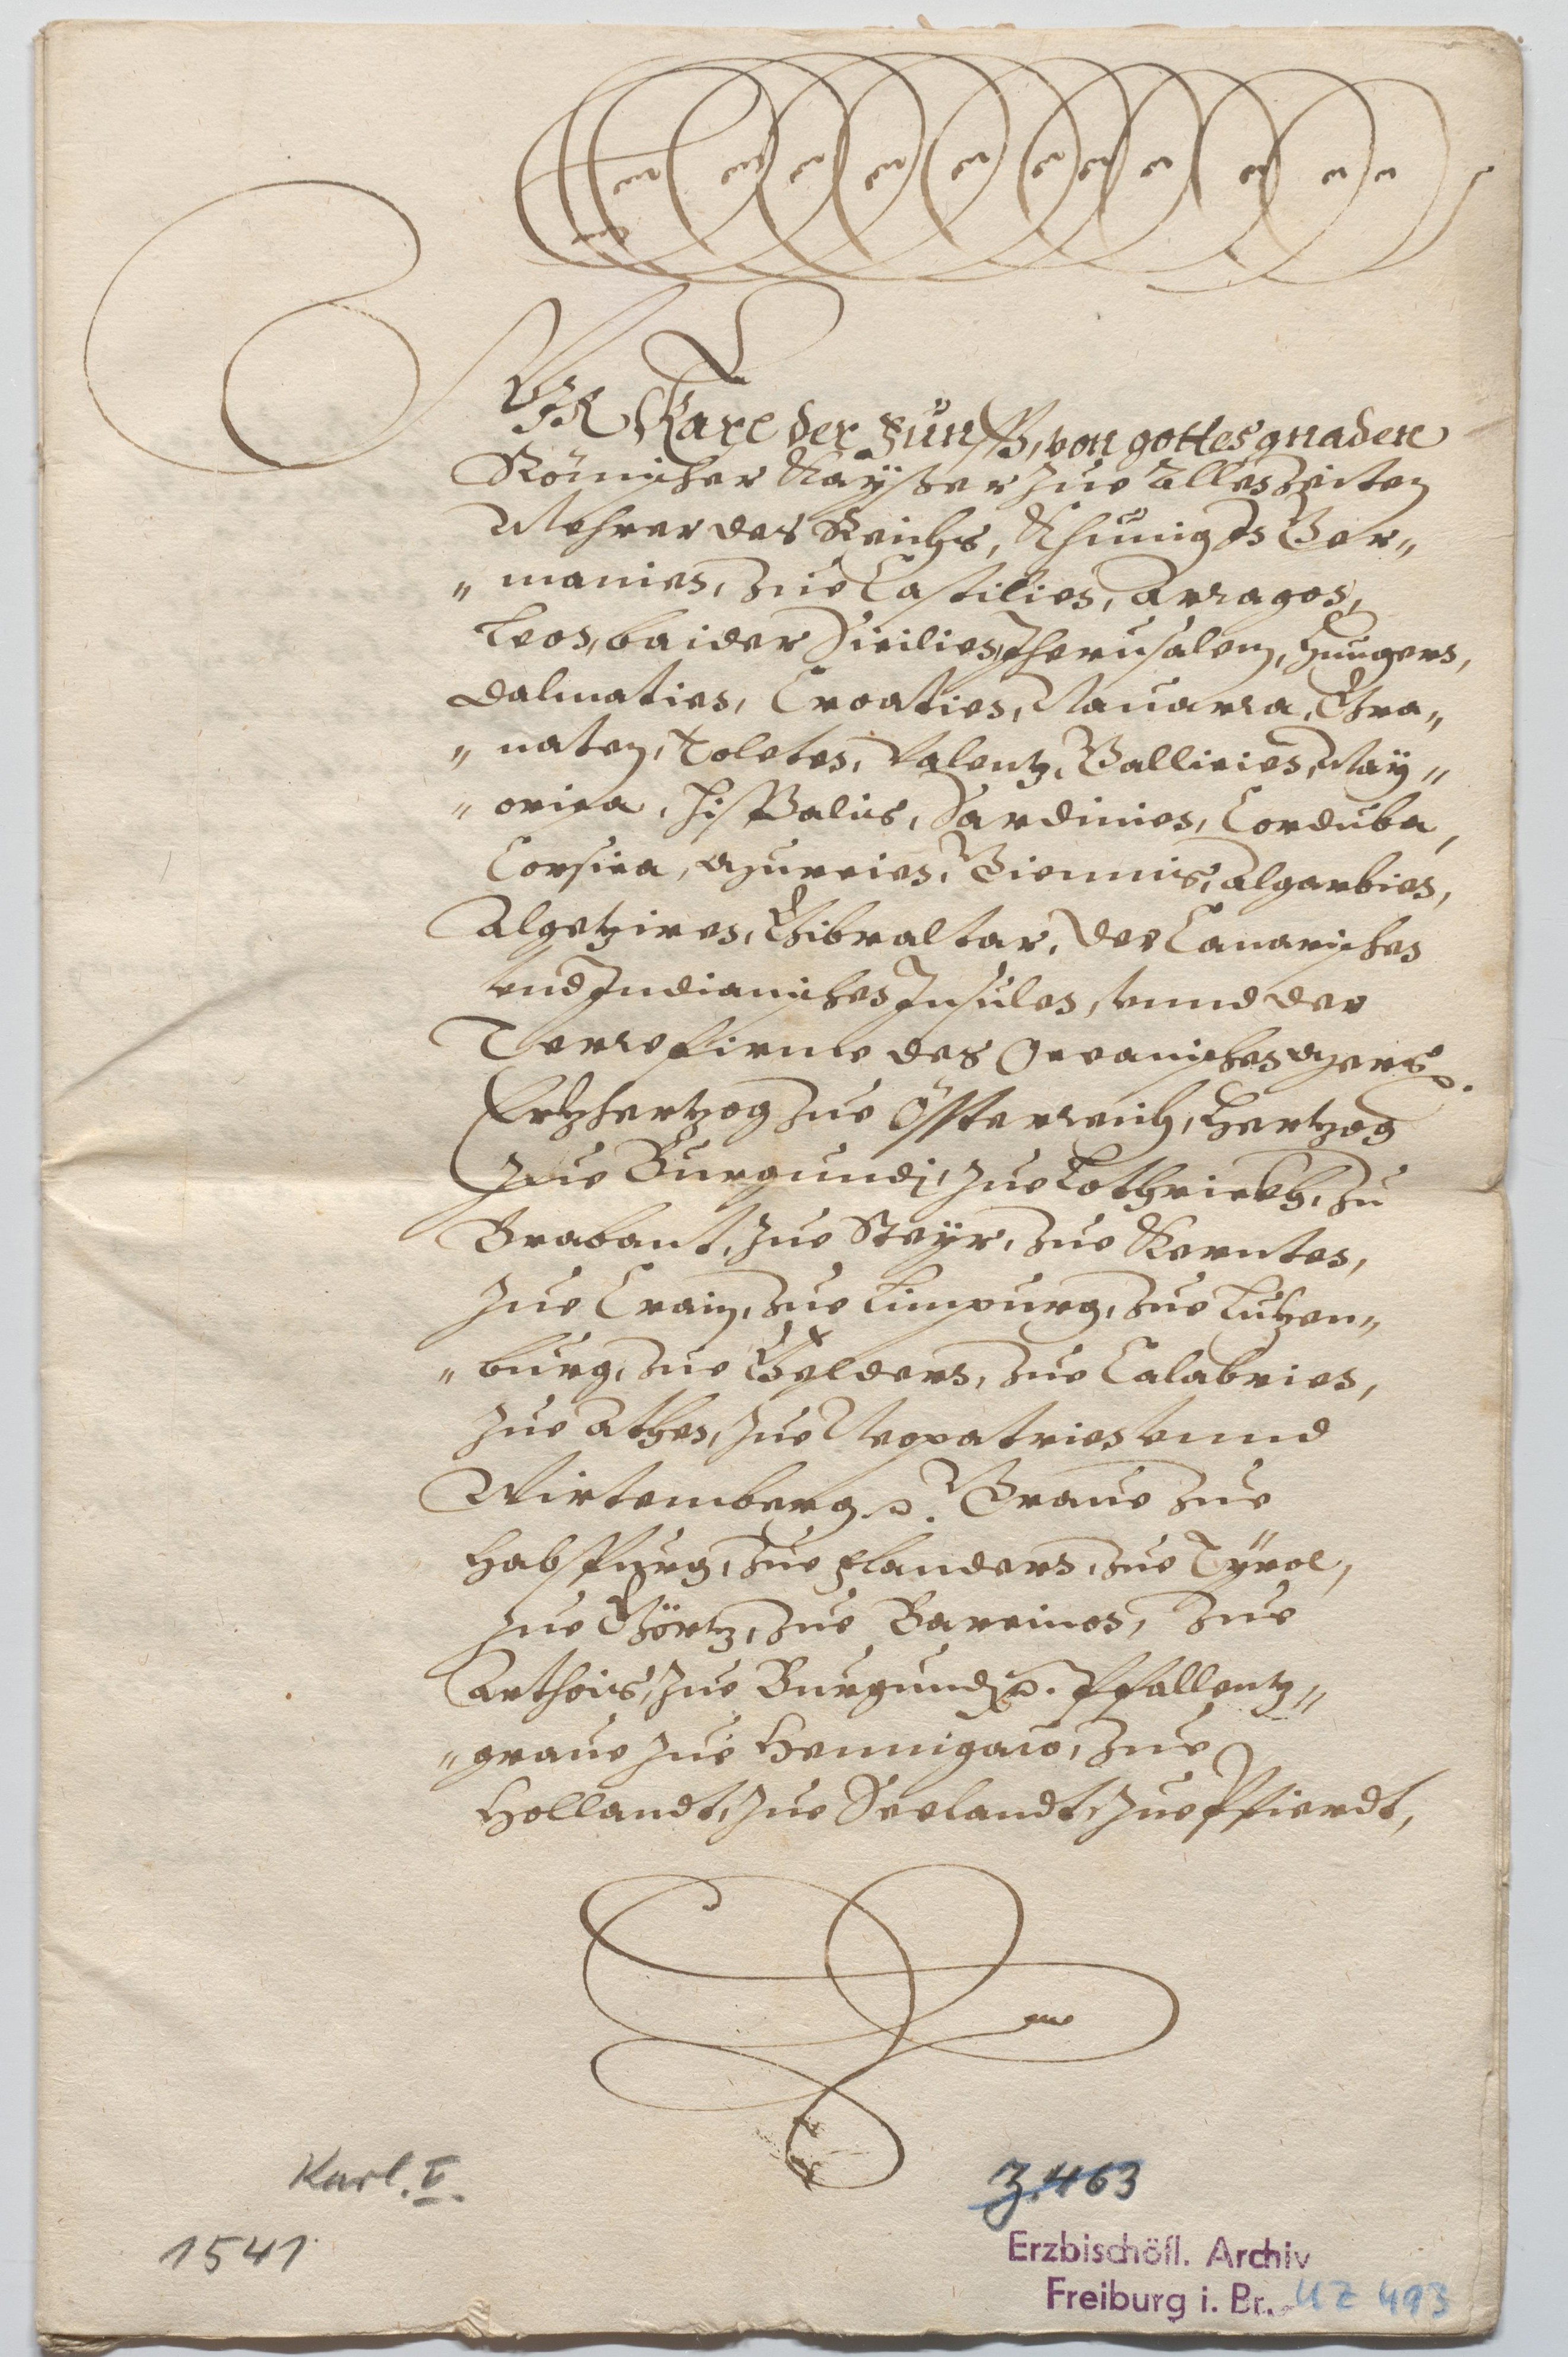 WIR Karl der Fünfft, von gottes gnaden
Römischer Kaÿser zue allen Zeiten
Mehrer des Reichs, Khünig In Ger„
„manien, zue Castilien, Arragon,
Leon, baider Sicilien, Jherusalem, Hungern,
Dalmatien, Croatien, Nauarra, Gra„
„naten, Toleten, Valentz, Gallicien, Maÿ„
„orica, Hispalis, Sardinien, Corduba,
Corsica, Murcien, Giennis, Algarbien,
Algetziren, Gibraltar, der Canarischen
vnd Indianischen Insulen, vnnd der
Terre firme des Oceanischen Mers ꝛc.
Ertzhertzog zue Össterreich, Hertzog
zue Burgundj, zue Lothrickh, zu
Brabant, zue Steÿr, zue Kernten,
zue Crain, zue Limpurg, zue Lutzen„
„burg, zue Geldern, zue Calabrien,
zue Athen, zue Neopatrien vnnd
Wirtemberg ꝛc. Graue zue
Habspurg, zue Flandern, zue Tÿrol,
zue Görtz, zue Barcinon, zue
Arthois, zue Burgundj ꝛc. Pfallentz„
„graue zue Hennigaw, zue
Hollandt, zue Seelandt, zue Pfierdt,
Karl. V.
1541
Z. 463
Erzbischöfl. Archiv
Freiburg i. Br. UZ 493